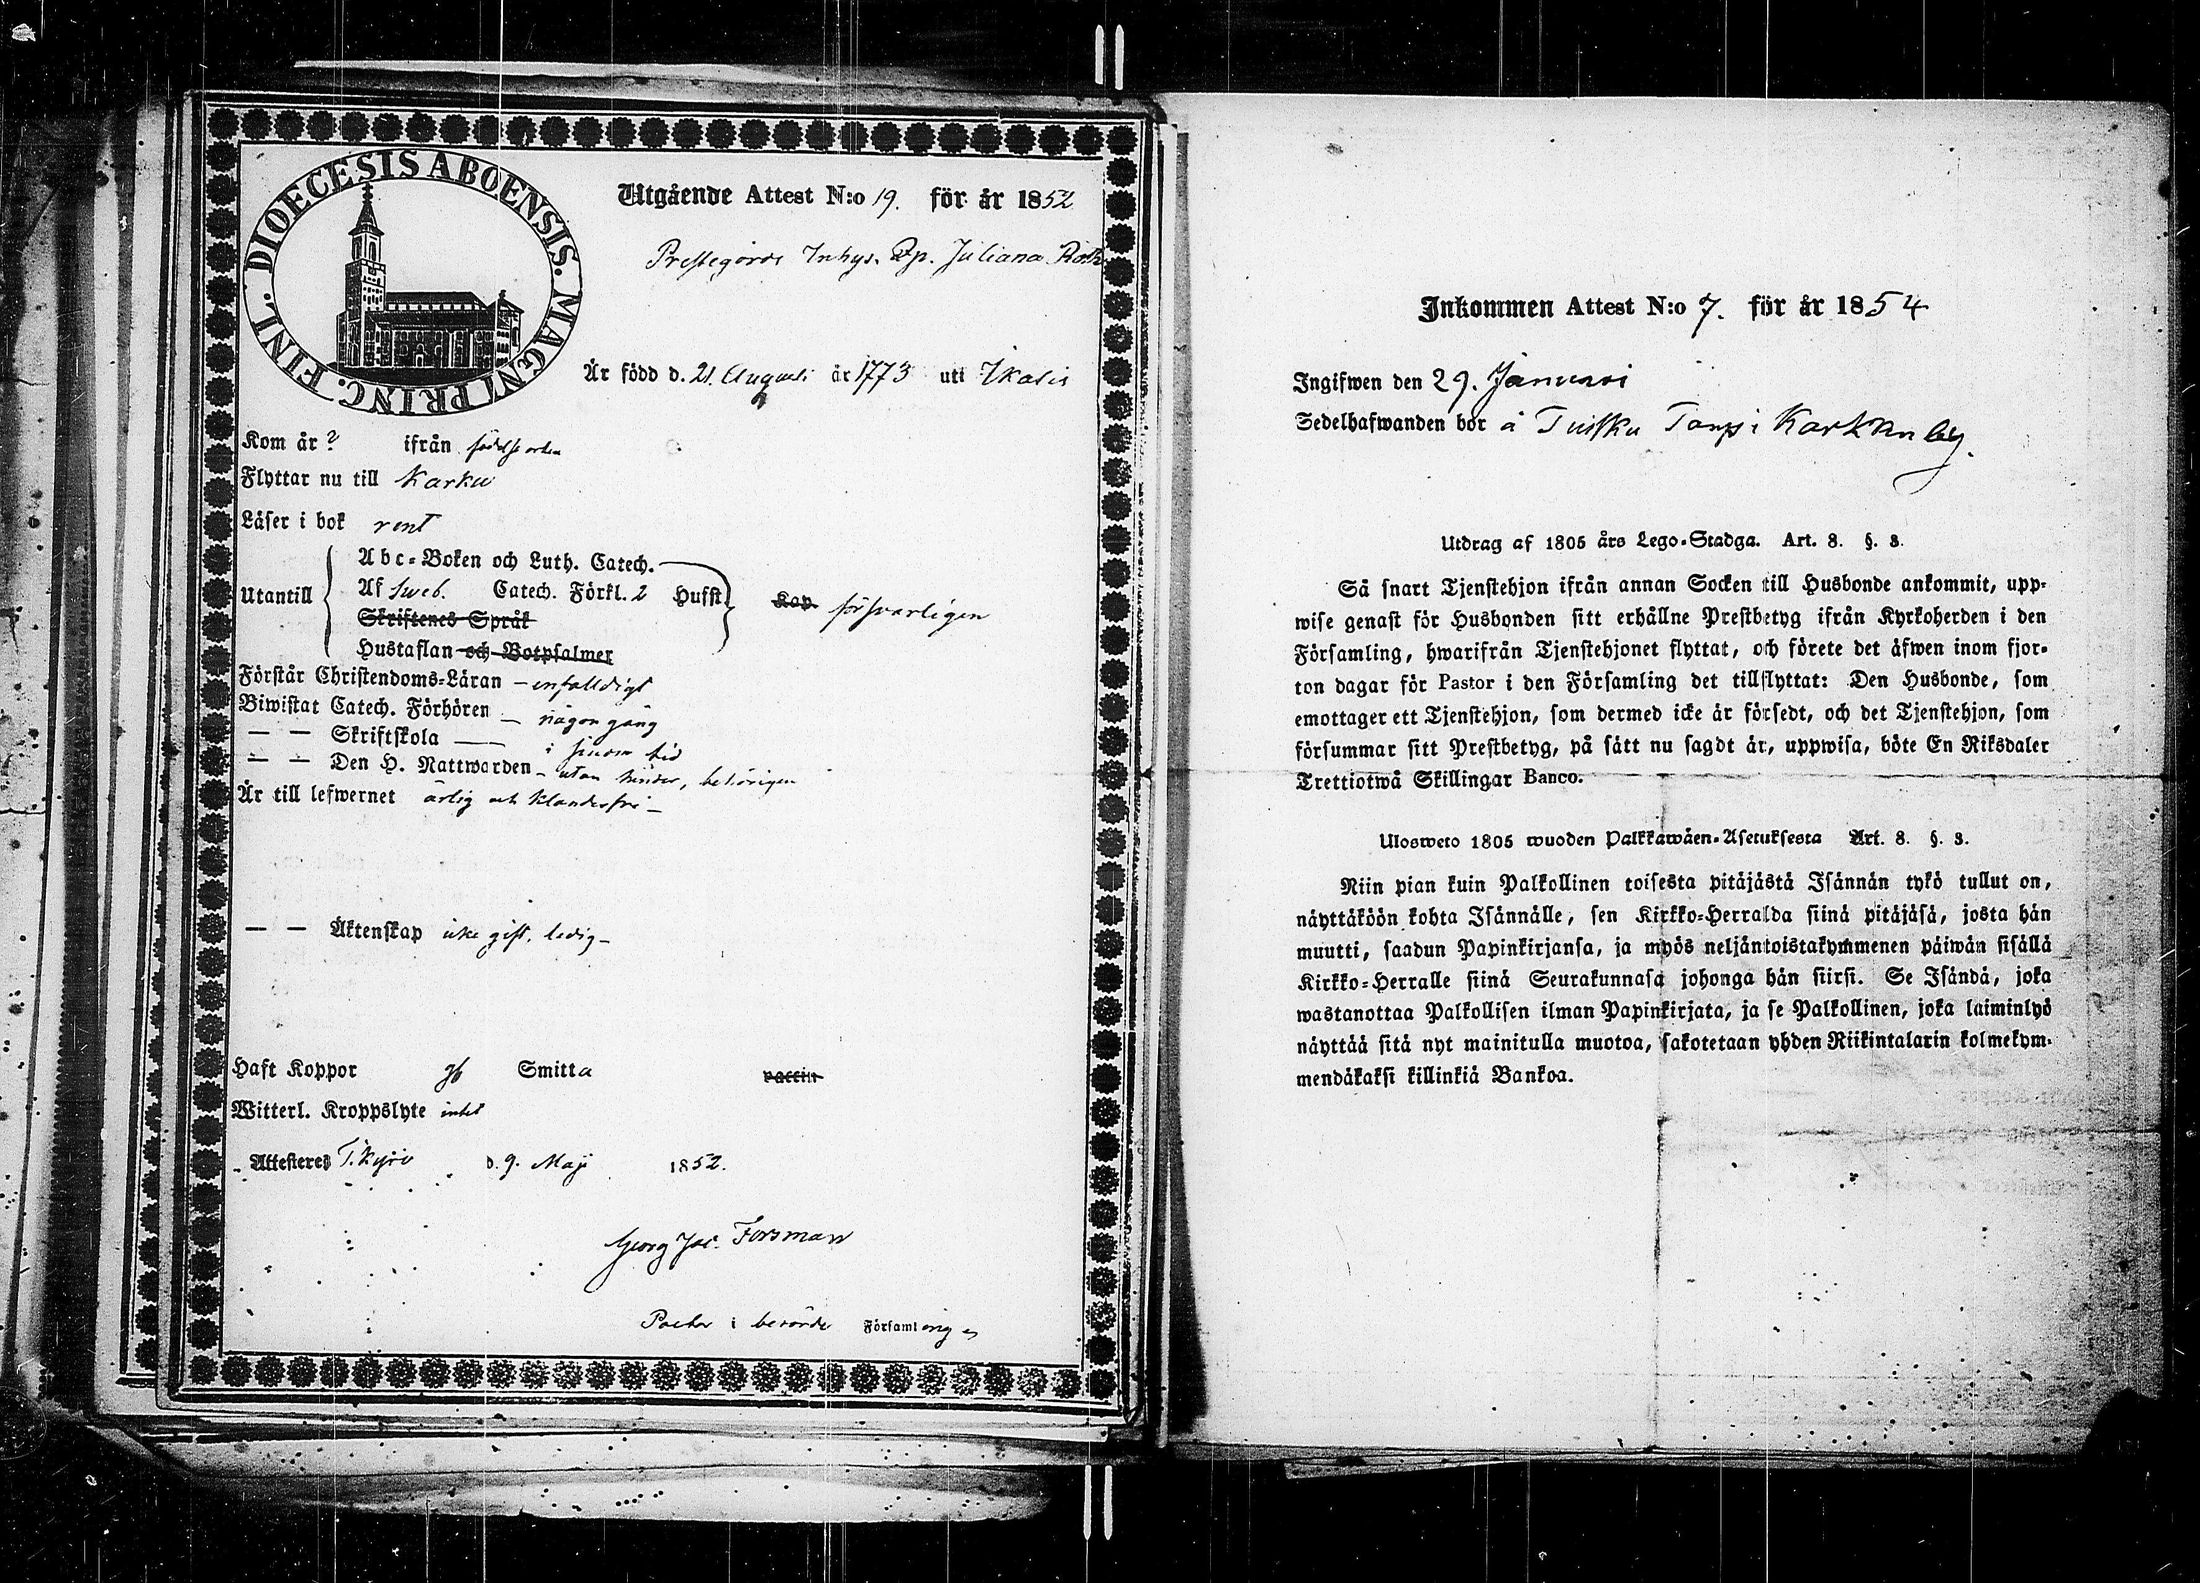 DIOECESIS ABOENSIS. MAGNI PRINC. FINL.
Utgående Attest N:o 19. för år 1852
Prestegårds Inhys. Juliana
Är född d. 21. Augusti år 1773 uti Ikalis
Kom år ? ifrån födelse orten
Flyttar nu till Karku
Läser i bok rent
Utantill
Abc-Boken och Luth. Catech.
Af Sweb. Catech. Förkl. 2 Husst. Kap. försvarligen
Skriftenes Språk
Hustaflan och Botpsalmer
Förstår Christendoms-Läran – enfaldigt
Biwistat Catech. Förhören – någon gång
— — Skriftskola — i sinom tid
— — Den H. Nattwarden – utan hinder, behörigen
Är till lefwernet ärlig och klanderfri –
— — Äktenskap icke gift, ledig –
Haft Koppor Smitta vaccin
Witterl. Kroppslyte intet
Attesteres T. Kyro d. 9. Maji 1852.
Georg Jac. Forsman
Pastor i berörde Församling
Inkommen Attest N:o 7. för år 1854
Ingifwen den 29. Januari
Sedelhafwanden bor å Tuisku Torp i Karkku by.
Utdrag af 1805 års Lego-Stadga. Art. 8. §. 3.
Så snart Tjenstehjon ifrån annan Socken till Husbonde ankommit, upp-
wise genast för Husbonden sitt erhållne Prestbetyg ifrån Kyrkoherden i den
Församling, hwarifrån Tjenstehjonet flyttat, och förete det äfwen inom fjor-
ton dagar för Pastor i den Församling det tillflyttat: Den Husbonde, som
emottager ett Tjenstehjon, som dermed icke är försedt, och det Tjenstehjon, som
försummar sitt Prestbetyg, på sätt nu sagdt är, uppwisa, böte En Riksdaler
Trettiotwå Skillingar Banco.
Ulosweto 1805 wuoden Palkkawäen-Asetuksesta Art. 8. §. 3.
Niin pian kuin Palkollinen toisesta pitäjästä Isännän tykö tullut on,
näyttäköön kohta Isännälle, sen Kirkko-Herralda siinä pitäjäsä, josta hän
muutti, saadun Papinkirjansa, ja myös neljäntoistakymmenen päiwän sisällä
Kirkko-Herralle siinä Seurakunnasa johonga hän siirsi. Se Isändä, joka
wastanottaa Palkollisen ilman Papinkirjata, ja se Palkollinen, joka laiminlyö
näyttää sitä nyt mainitulla muotoa, sakotetaan yhden Riikintalarin kolmekym-
mendäkaksi killinkiä Bankoa.